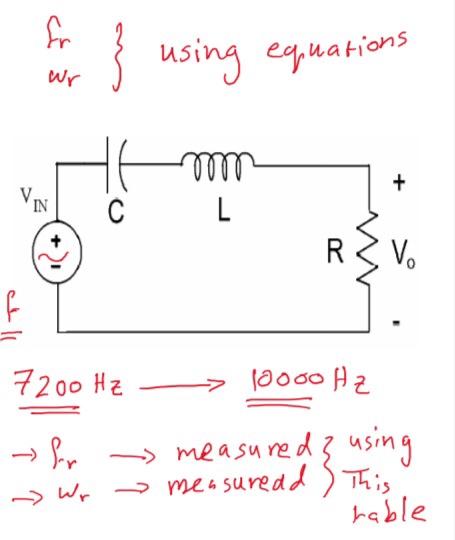 fr
wr } using equations
VIN
C
L
+
R
Vo
-
+
-
f
7200 Hz → 10000 Hz
→ fr → measured } using
→ wr → measuredd } This
table